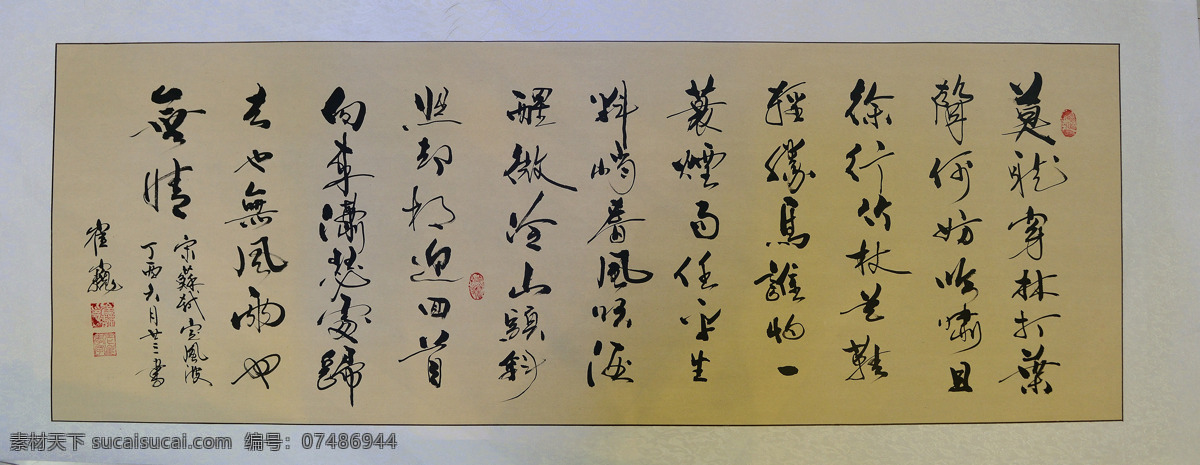 莫聽穿林打葉
聲何妨吟嘯且
徐行竹杖芒鞋
輕勝馬誰怕一
蓑煙雨任平生
料峭春風吹酒
醒微冷山頭斜
照却相迎回首
向來瀟瑟處歸
去也無風雨也
無情
宋蘇軾定風波
丁酉六月廿三書
崔巍
素材天下 sucaisucai.com 编号：07486944